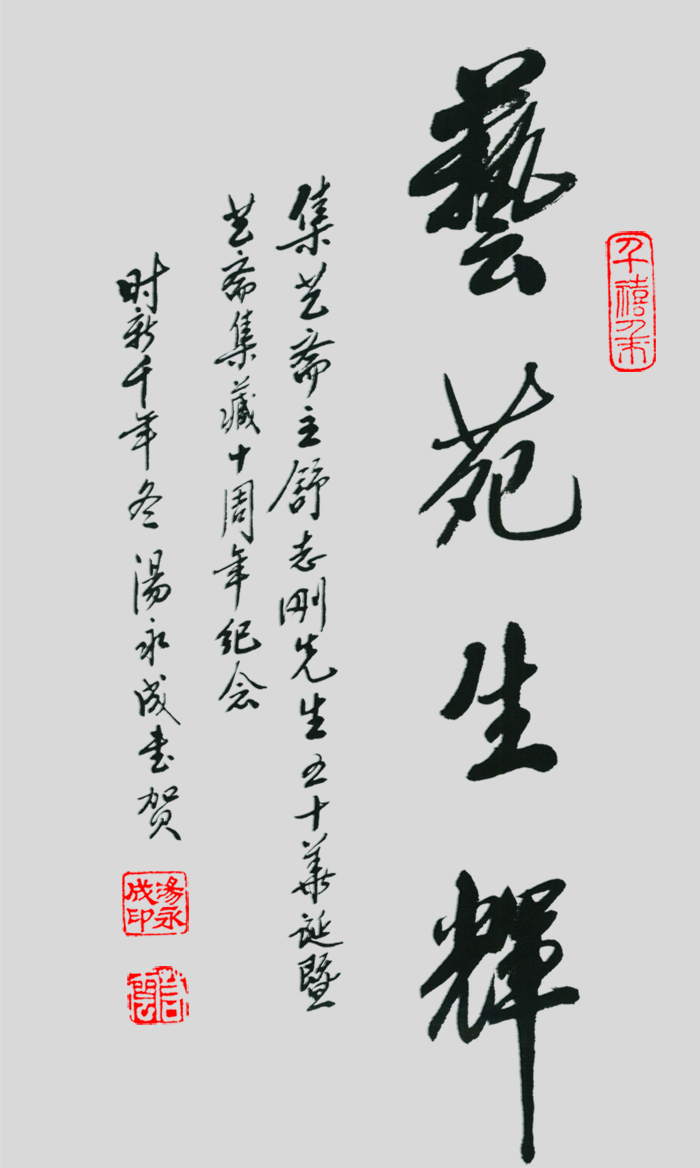 藝苑生輝
集艺斋主舒志刚先生五十華诞暨
艺斋集藏十周年纪念
时新千年冬湯永成书贺
湯永成印